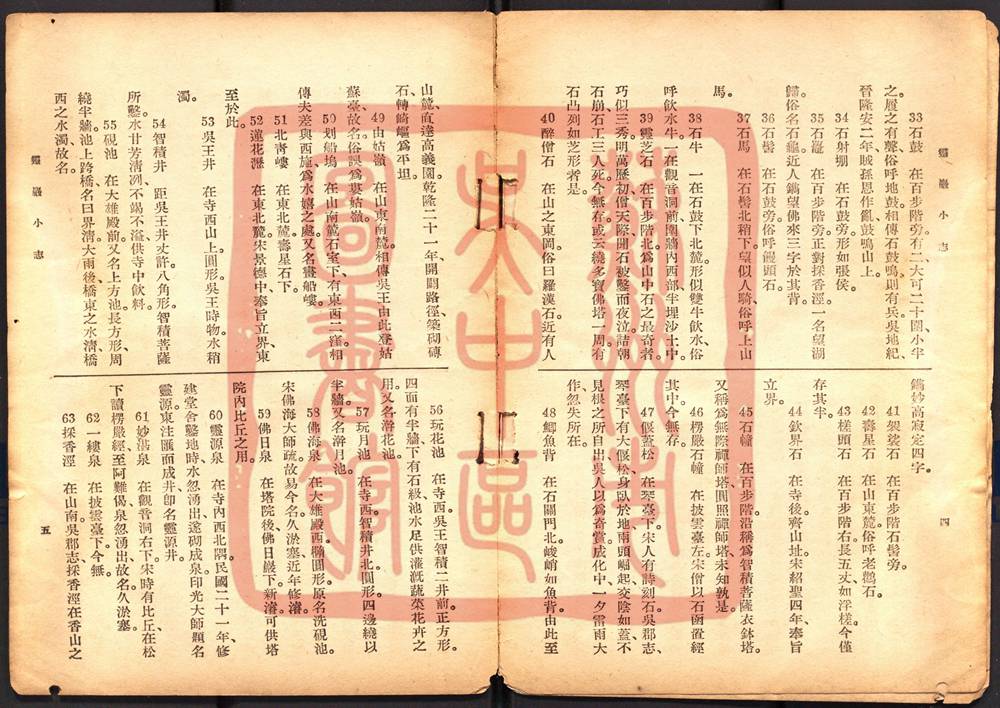 靈巖小志
33石鼓　在百步階旁有二大可二十圍小半
之履之有聲俗呼地鼓相傳石鼓鳴則有兵吳地紀
晉隆安二年賊孫恩作亂鼓鳴山上。
34石射堋　在石鼓旁形如張侯
35石龜　在百步階旁正對採香涇一名望湖
歸俗名石龜近人鐫望佛來三字於其背
36石髻　在石鼓旁俗呼饅頭石
37石馬　在石髻北稍下望似人騎俗呼上山
馬。
38石牛　一在石鼓下北麓形似雙牛飲水俗
呼飲水牛。一在觀音洞前圍牆內西部半埋沙土中
39靈芝石　在百步階北爲山中石之最奇者
巧似三秀明萬歷初僧天際開石被鑿而夜泣詰朝
石崩石工三人死今無存或云繞多寶佛塔一周有
石凸列如芝形者是
40醉僧石　在山之東岡俗曰羅漢石近有人
鐫妙高寂定四字。
41袈裟石　在百步階石髻旁。
42壽星石　在山東麓俗呼老鸛石。
43槎頭石　在百步階右長五丈如浮槎今僅
存其半。
44欽界石　在寺後齊山址宋紹聖四年奉旨
立界。
45石幢　在百步階沿稱爲智積菩薩衣鉢塔。
又稱爲無際禪師塔圓照禪師塔未知孰是。
46楞嚴石幢　在披雲臺左宋僧以石函置經
其中今無存
47偃蓋松　在琴臺下宋人有詩刻石吳郡志、
琴臺下有大偃松身臥於地兩頭崛起交陰如蓋不
見根之所自出吳人以爲奇賞成化中一夕雷雨大
作忽失所在。
48鯽魚背　在石關門北峻峭如魚背由此至
四
山麓直達高義園乾隆二十一年開闢路徑築砌磚
石轉崎嶇爲平坦。
49由姑嶺　在山東南麓相傳吳王由此登姑
蘇臺故名俗誤爲猛姑嶺。
50划船塢　在山南麓石室下有東西二窪相
傳夫差與西施爲水嬉之處又名畫船嶁。
51北青嶁　在東北麓壽星石下。
52蓮花灘　在東北麓宋景德中奉旨立界東
至於此。
53吳王井　在寺西山上圓形吳王時物水稍
濁。
54智積井　距吳王井丈許八角形。智積菩薩
所鑿水甘芳清冽不竭不溢供寺中飲料。
55硯池　在大雄殿前又名上方池長方形周
繞半牆池上跨橋名曰界清大雨後橋東之水清橋
西之水濁故名。
56玩花池　在寺西吳王智積二井前正方形。
四面有半牆下有石級池水足供灌漑蔬菜花卉之
用又名澣花池。
57玩月池　在寺西智積井北圓形四邊繞以
半牆又名澣月池。
58佛海泉　在大雄殿西牆圓形原名洗硯池。
宋佛海大師疏故易今名久淤塞近年修濬。
59佛日泉　在塔院後佛日巖下新濬可供塔
院內比丘之用
60靈源泉　在寺內西北隅民國二十一年修
建堂舍鑿地時水忽湧出遂砌成泉印光大師顯名
靈源東注匯而成井卽名靈源井
61妙湛泉　在觀音洞右下宋時有比丘在松
下讀楞嚴經至阿難偈泉忽湧出故名久淤塞
62一縷泉　在披雲臺下今無
63採香涇　在山南吳郡志採香涇在香山之
五
靈巖小志
圖書館